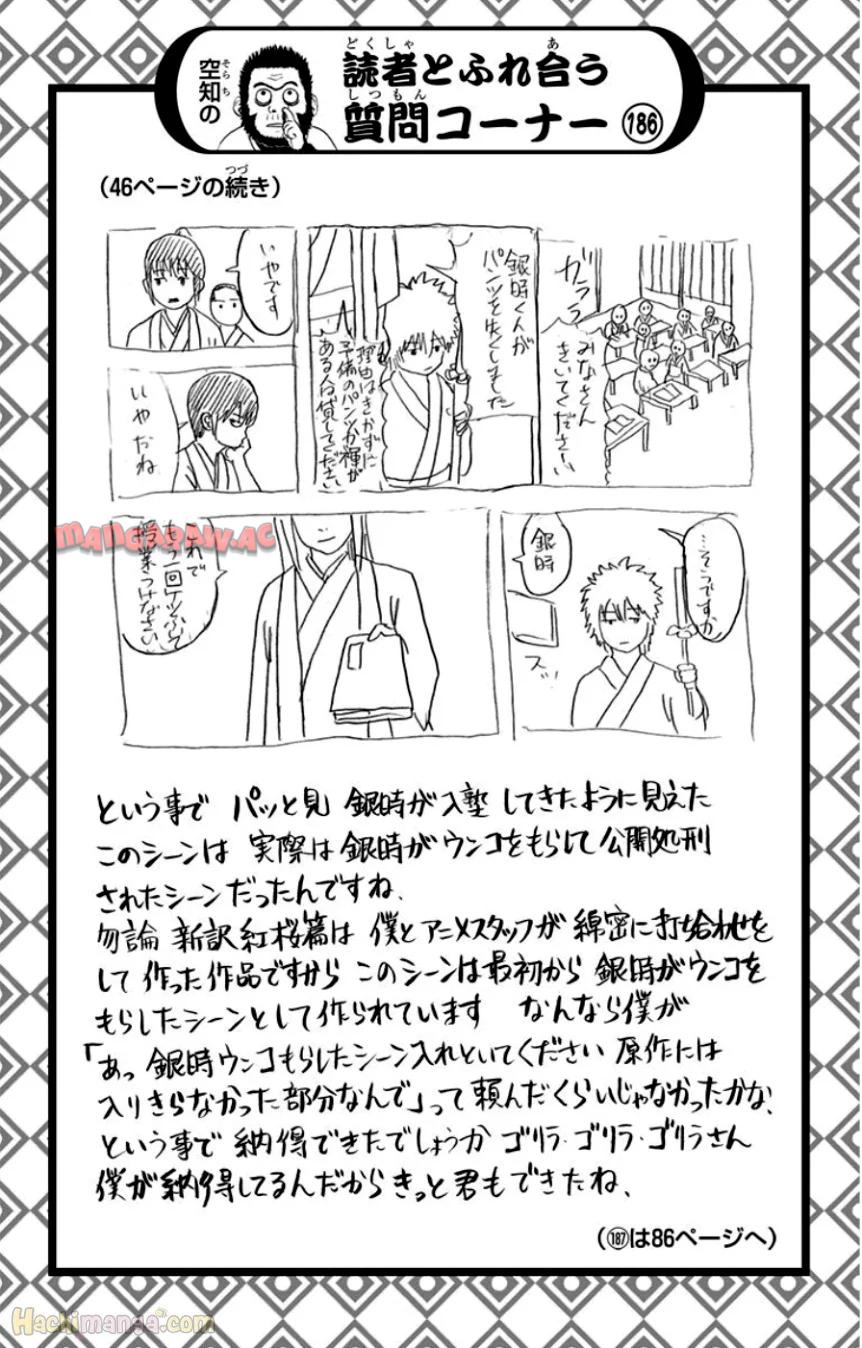 空知の
読者とふれ合う
質問コーナー 186
(46ページの続き)
ガララ
みなさん
きいてください
銀時くんが
パンツを失くしました
理由はきかずに
予備のパンツか褌が
ある人は貸してください
いやです
いやだね
…そうですか
銀時
ズッ
これで
もう一回ケツふいて
授業うけなさい
MANGARAW.AC
という事で パッと見 銀時が入塾してきたように見えた
このシーンは 実際は銀時がウンコをもらして公開処刑
されたシーンだったんですね、
勿論 新訳紅桜篇は 僕とアニメスタッフが 綿密に打ち合わせを
して作った作品ですから このシーンは最初から 銀時がウンコを
もらしたシーンとして作られています なんなら僕が
「あっ 銀時ウンコもらしたシーン入れといてください 原作には
入りきらなかった部分なんで」って頼んだくらいじゃなかったかな、
という事で 納得できたでしょうか ゴリラ・ゴリラ・ゴリラさん
僕が納得してるんだからきっと君もできたね、
(187は86ページへ)
Hachimanga.com